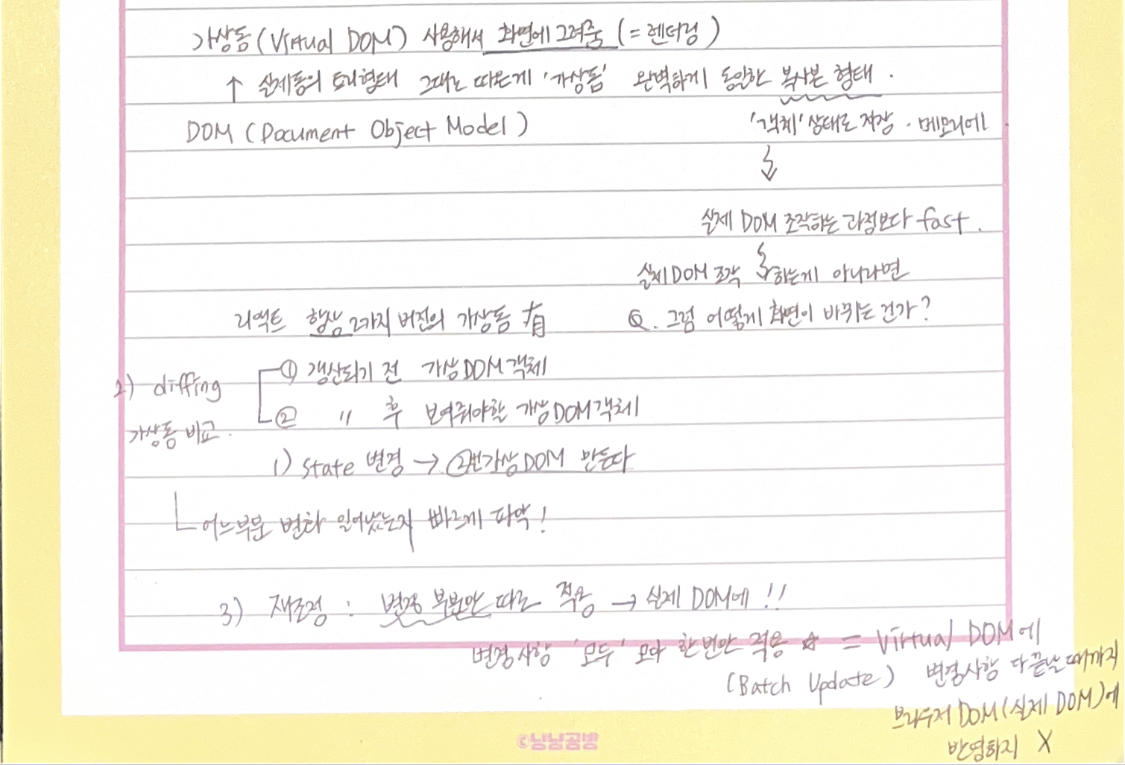 가상돔(Virtual DOM) 사용해서 화면에 그려줌 (= 렌더링)
↑ 실제돔의 트리형태 그대로 따온게 '가상돔' 완벽하게 동일한 복사본 형태.
DOM (Document Object Model)
'객체' 상태로 저장. 메모리에
실제 DOM 조작하는 과정보다 fast.
실제 DOM 조작 하는게 아니라면
Q. 그럼 어떻게 화면이 바뀌는 건가?
리액트 항상 2가지 버전의 가상돔 有
① 갱신되기 전 가상DOM 객체
2) diffing
가상돔 비교.
② 〃 후 보여줘야할 가상DOM 객체
1) state 변경 → ②번가상DOM 만든다
어느부분 변화 일어났는지 빠르게 파악!
3) 재조정 : 변경 부분만 따로 적용 → 실제 DOM에 !!
변경사항 '모두' 모아 한번만 적용 ☆ = Virtual DOM에
(Batch Update) 변경사항 다끝날때까지
브라우저 DOM(실제 DOM)에
반영하지 X
©닝닝공방